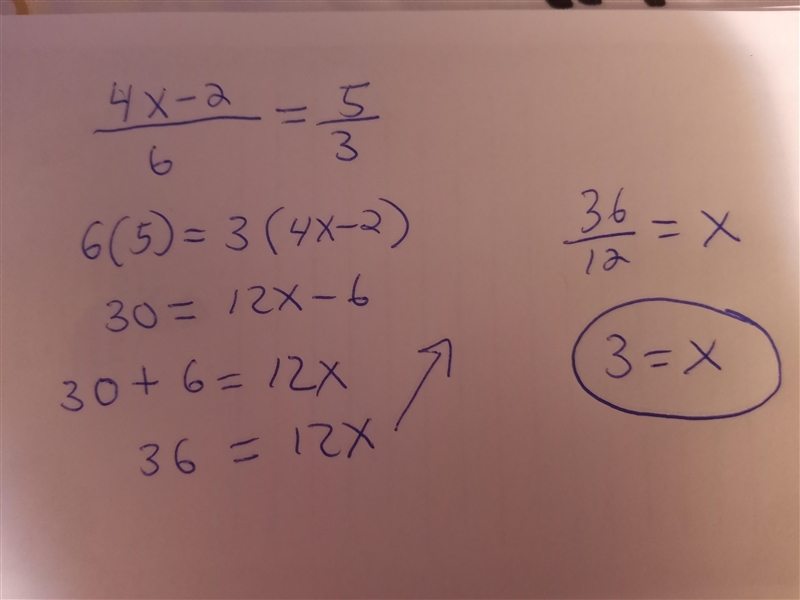 4x-2/6 = 5/3
6(5) = 3(4x-2)
30 = 12x - 6
30 + 6 = 12x
36 = 12x
36/12 = x
3 = x